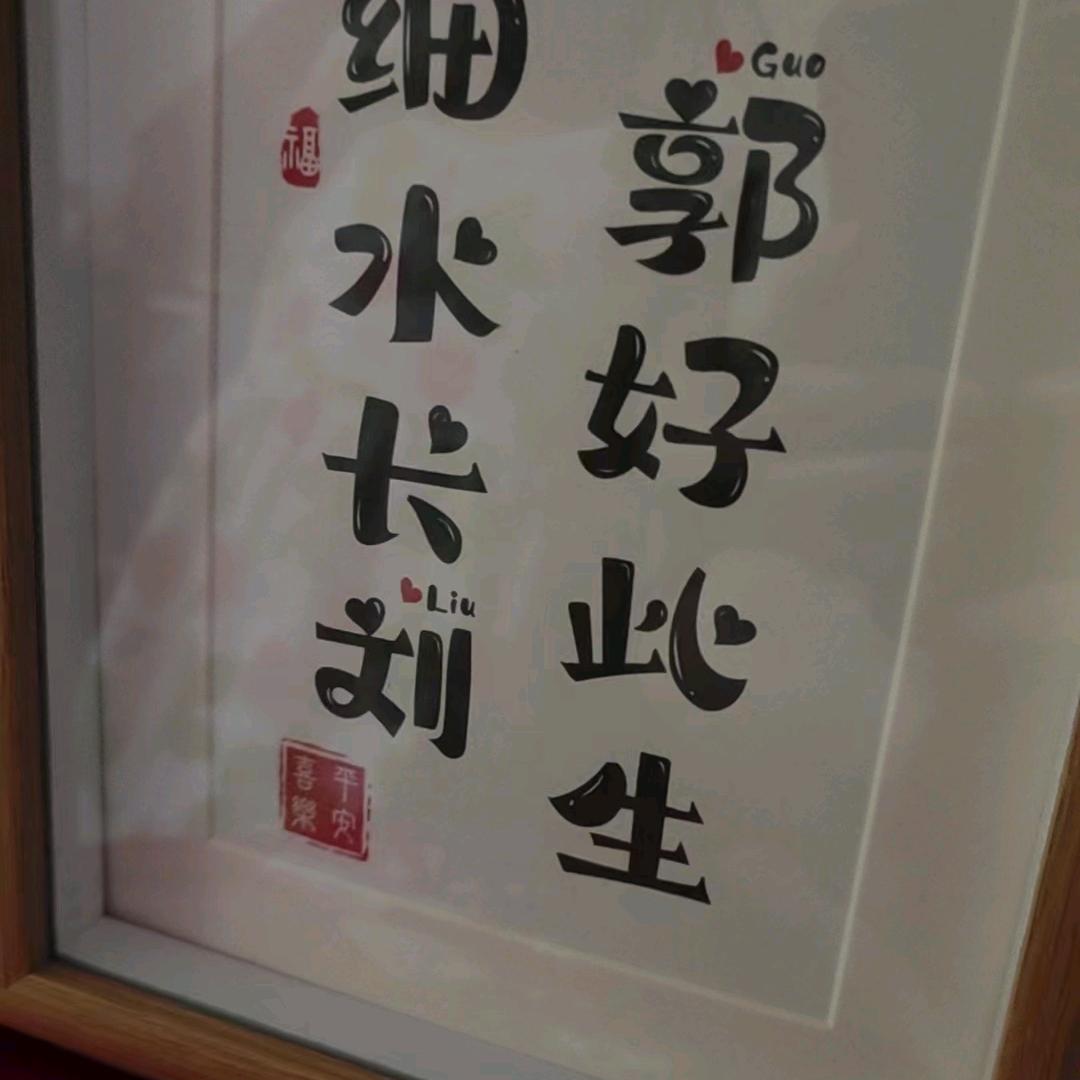 Guo
郭好此生
细水长刘
Liu
福
平安
喜樂